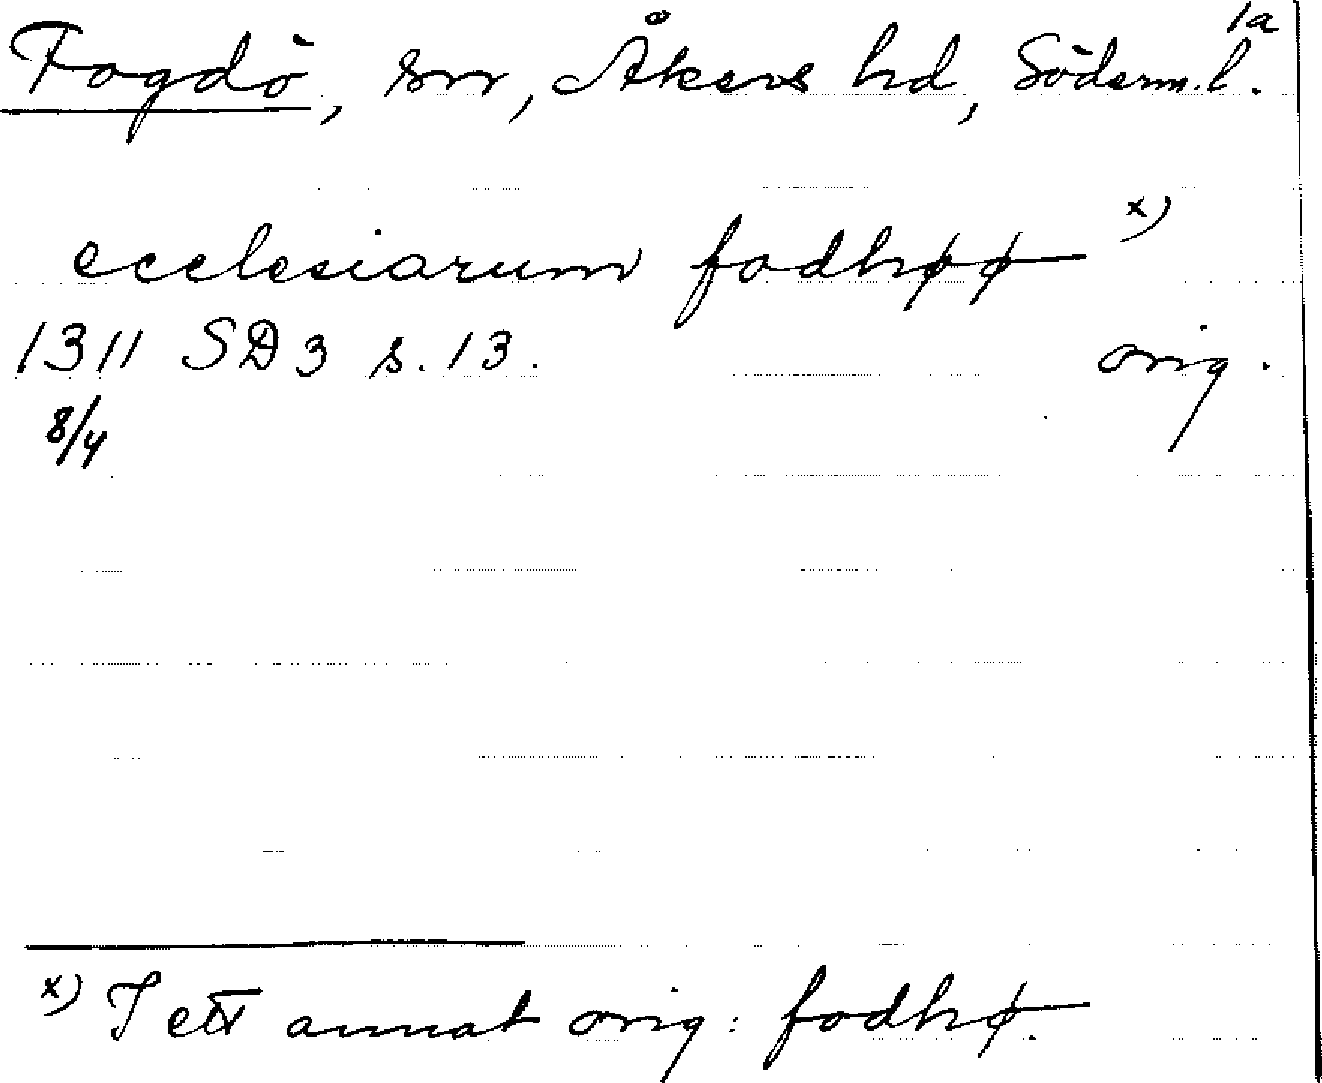 1a
Fogdö, sn, Åkers hd, Söderm.l.
ecclesiarum fodhøø x)
1311 SD3 s. 13. orig.
8/4
x) I ett annat orig: fodhø.